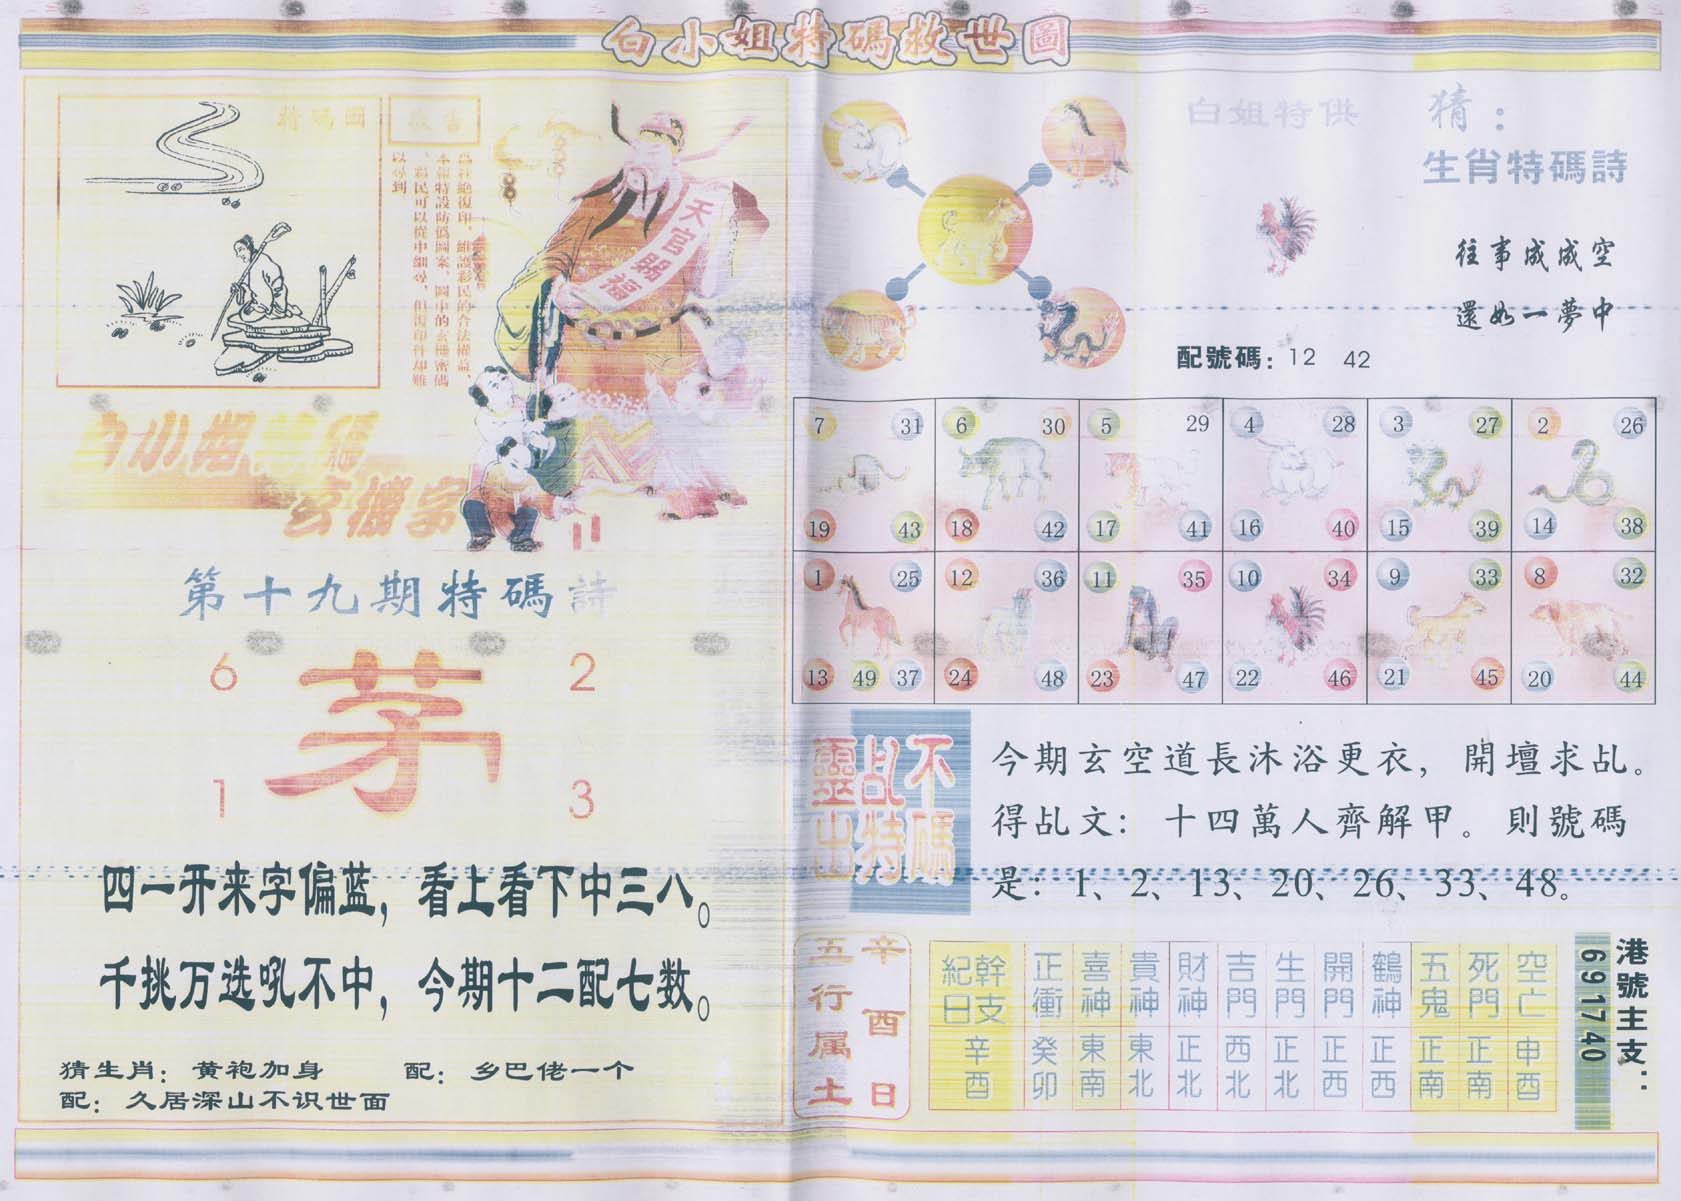 白小姐特碼救世圖
特碼圖
敬告
爲杜絶復印，維護彩民的合法權益，
本報特設防僞圖案，圖中的玄機密碼
，彩民可以從中細尋，但復印件却難
以尋到
天官賜福
白小姐特碼
玄機字
第十九期特碼詩
6 2
茅
1 3
四一开来字偏蓝，看上看下中三八。
千挑万选吼不中，今期十二配七数。
猜生肖：黄袍加身 配：乡巴佬一个
配：久居深山不识世面
白姐特供
猜：
生肖特碼詩
往事成成空
還如一夢中
配號碼：12 42
7 31 6 30 5 29 4 28 3 27 2 26
19 43 18 42 17 41 16 40 15 39 14 38
1 25 12 36 11 35 10 34 9 33 8 32
13 49 37 24 48 23 47 22 46 21 45 20 44
不碼
乩特
靈出
今期玄空道長沐浴更衣，開壇求乩。
得乩文：十四萬人齊解甲。則號碼
是：1、2、13、20、26、33、48。
辛酉日
五行属土
幹支紀日 正衝 喜神 貴神 財神 吉門 生門 開門 鶴神 五鬼 死門 空亡
辛酉 癸卯 東南 東北 正北 西北 正北 正西 正西 正南 正南 申酉
港號主支：
6991740